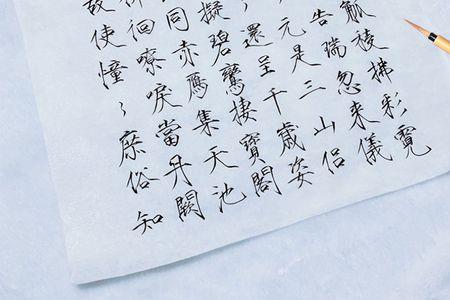 觚稜拂彩霓
告瑞忽來儀
元是三山侶
還呈千歲姿
擬碧鸞棲寶閣
同赤鴈集天池
徊嘹唳當丹闕
故使憧〻庶俗知